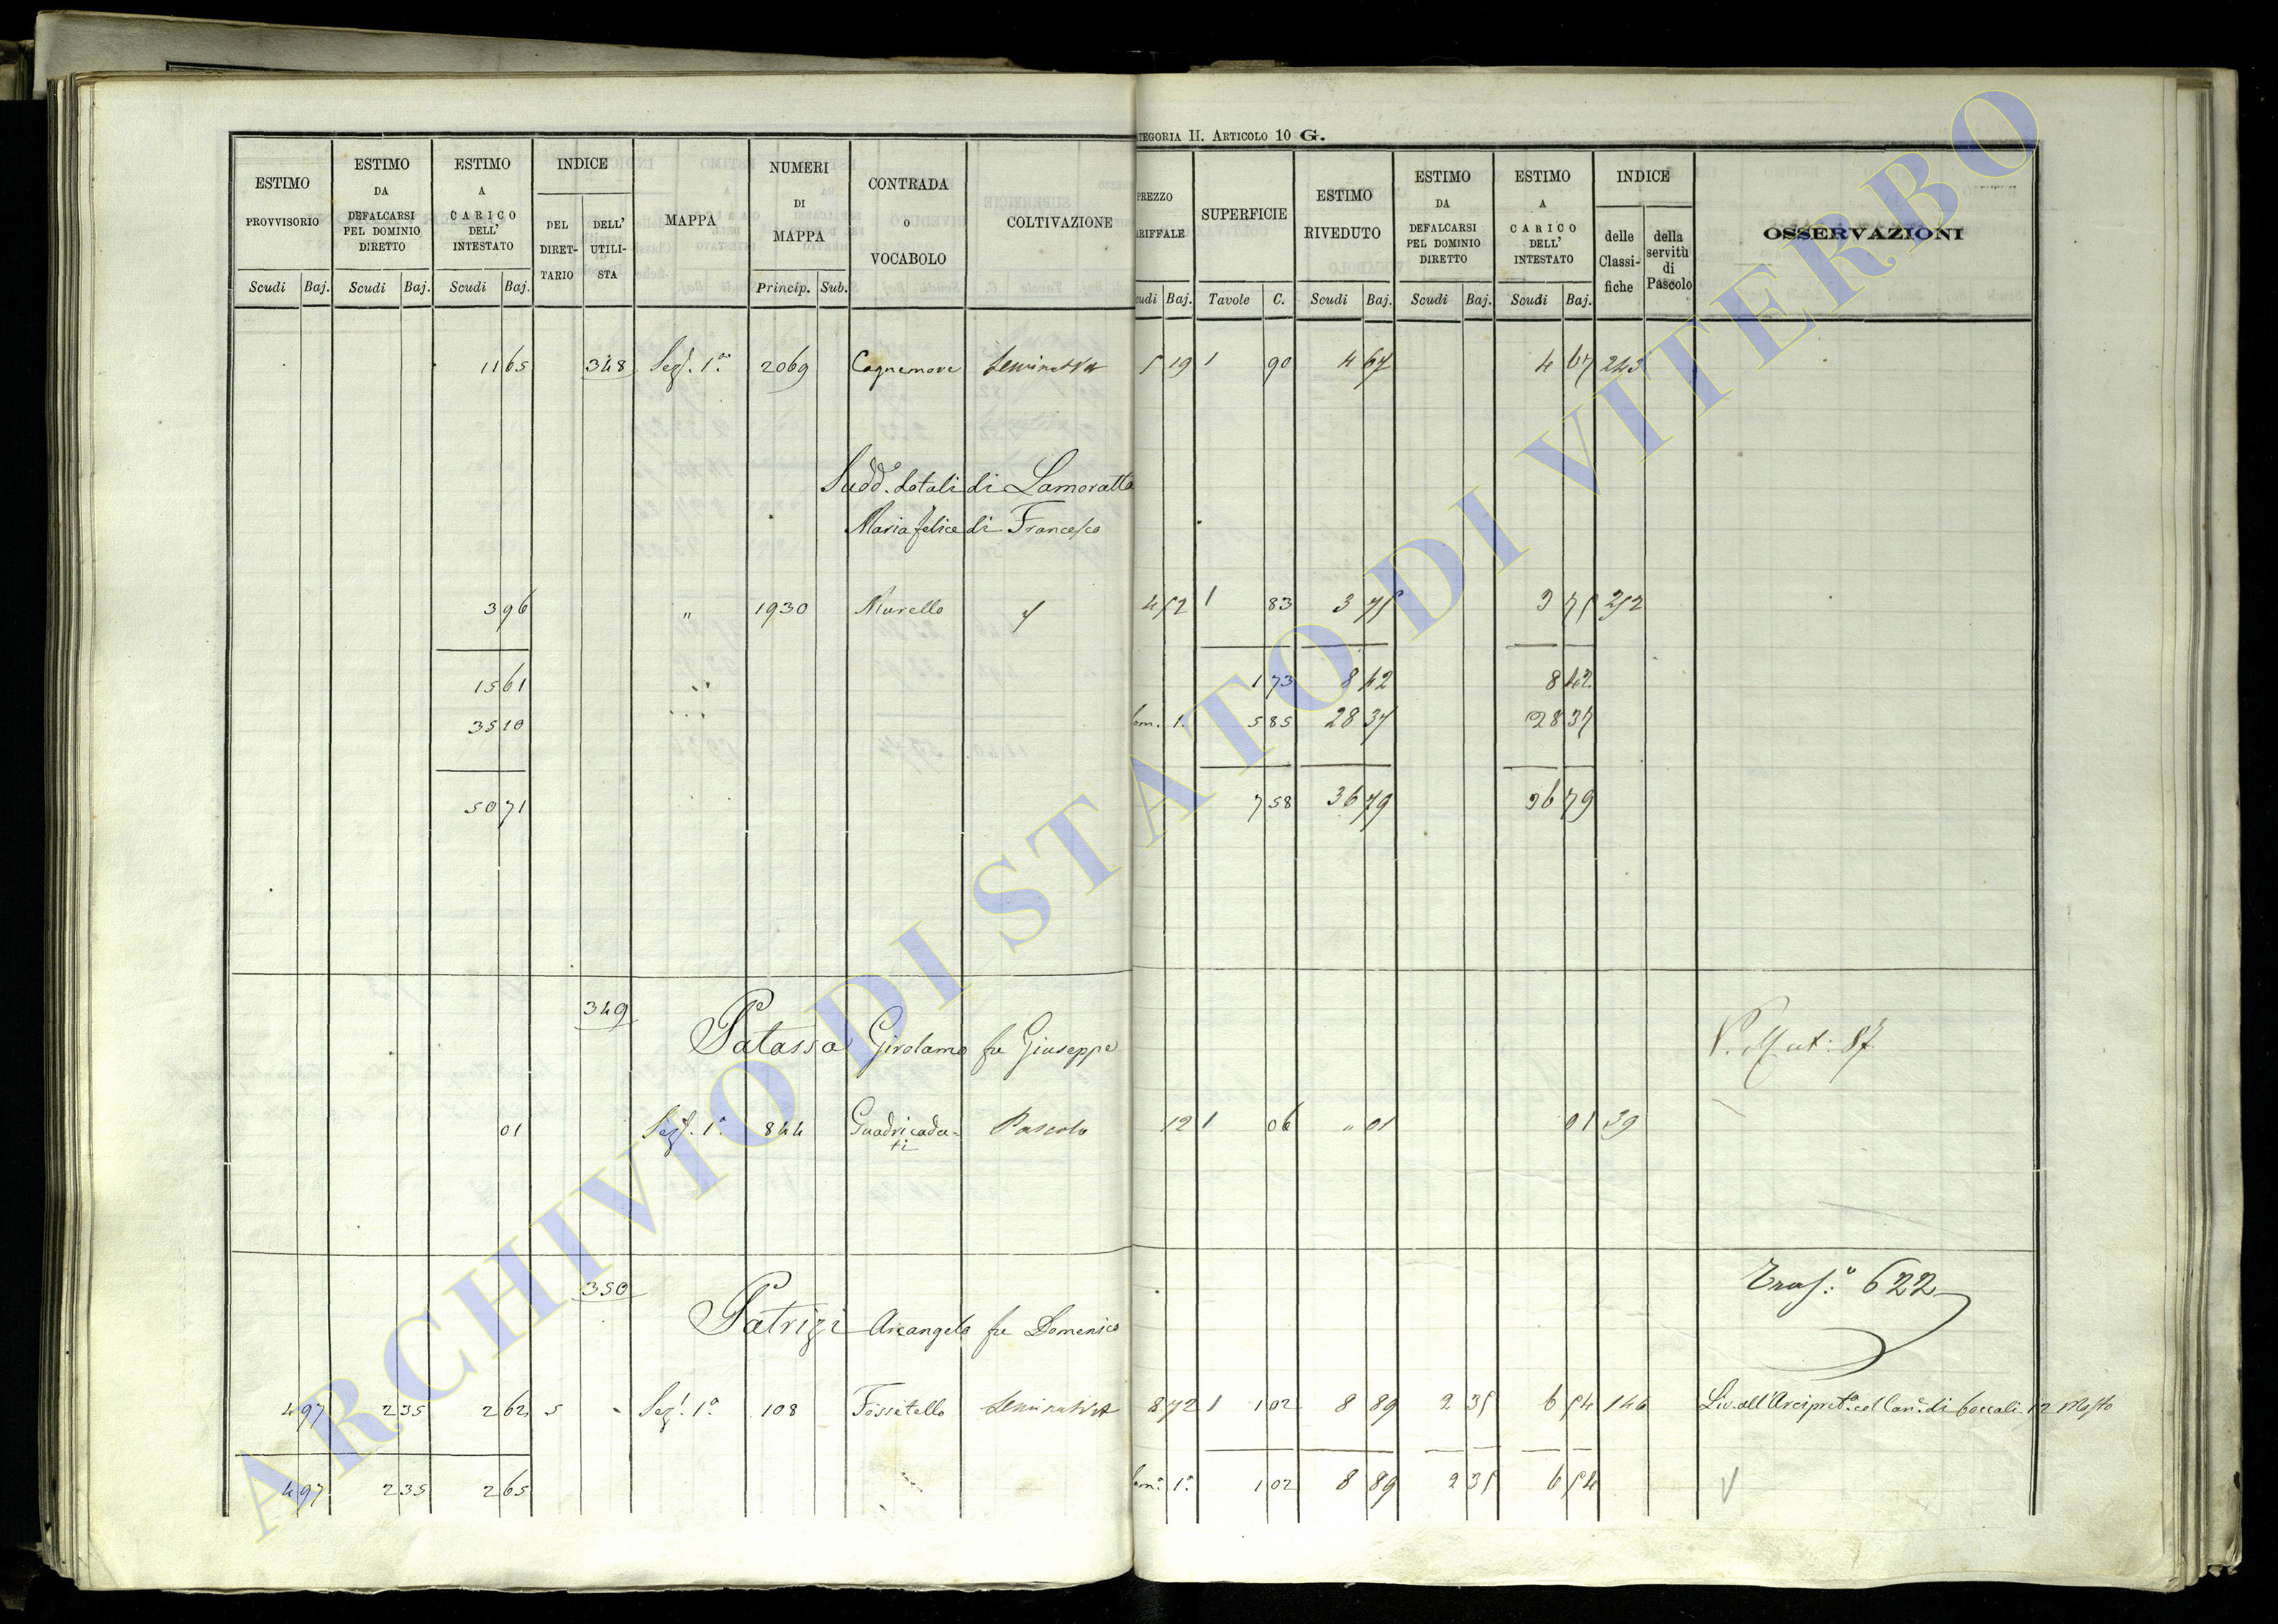 ATEGORIA II. ARTICOLO 10 G.
ESTIMO PROVVISORIO
ESTIMO DA DEFALCARSI PEL DOMINIO DIRETTO
ESTIMO A CARICO DELL' INTESTATO
INDICE
DEL DIRET-TARIO
DELL' UTILI-STA
MAPPA
NUMERI DI MAPPA
CONTRADA o VOCABOLO
COLTIVAZIONE
PREZZO ARIFFALE
SUPERFICIE
ESTIMO RIVEDUTO
ESTIMO DA DEFALCARSI PEL DOMINIO DIRETTO
ESTIMO A CARICO DELL' INTESTATO
INDICE
delle Classi-fiche
della servitù di Pascolo
OSSERVAZIONI
Scudi Baj. Scudi Baj. Scudi Baj. Princip. Sub. cudi Baj. Tavole C. Scudi Baj. Scudi Baj. Scudi Baj.
11 65 348 Sez. 1a 2069 Cagnemore Seminativo 5 19 1 90 4 67 4 67 245
Sudd. dotali di Lamoratta
Maria felice di Francesco
3 96 " 1930 Murello 4 52 1 83 3 75 3 75 252
15 61 1 73 8 42 8 42
35 10 om. 1. 5 85 28 37 28 37
50 71 7 58 36 79 36 79
349
Patassa Girolamo fu Giuseppe
V. Mut: 87
01 Sez. 1a 844 Guadricada-ti Pascolo 12 1 06 " 01 01 39
350
Tras.o 622
Patrizi Arcangelo fu Domenico
4 97 2 35 2 62 5 Sez. 1a 108 Fossetello Seminativo 8 72 1 1 02 8 89 2 35 6 54 146 Liv. all'Arcipret.a col Can.e di boccali 12 Mosto
4 97 2 35 2 65 om. 1a 1 02 8 89 2 35 6 54
ARCHIVIO DI STATO DI VITERBO